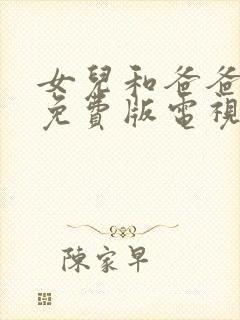 女兒和爸爸
免費版電視
陳家早